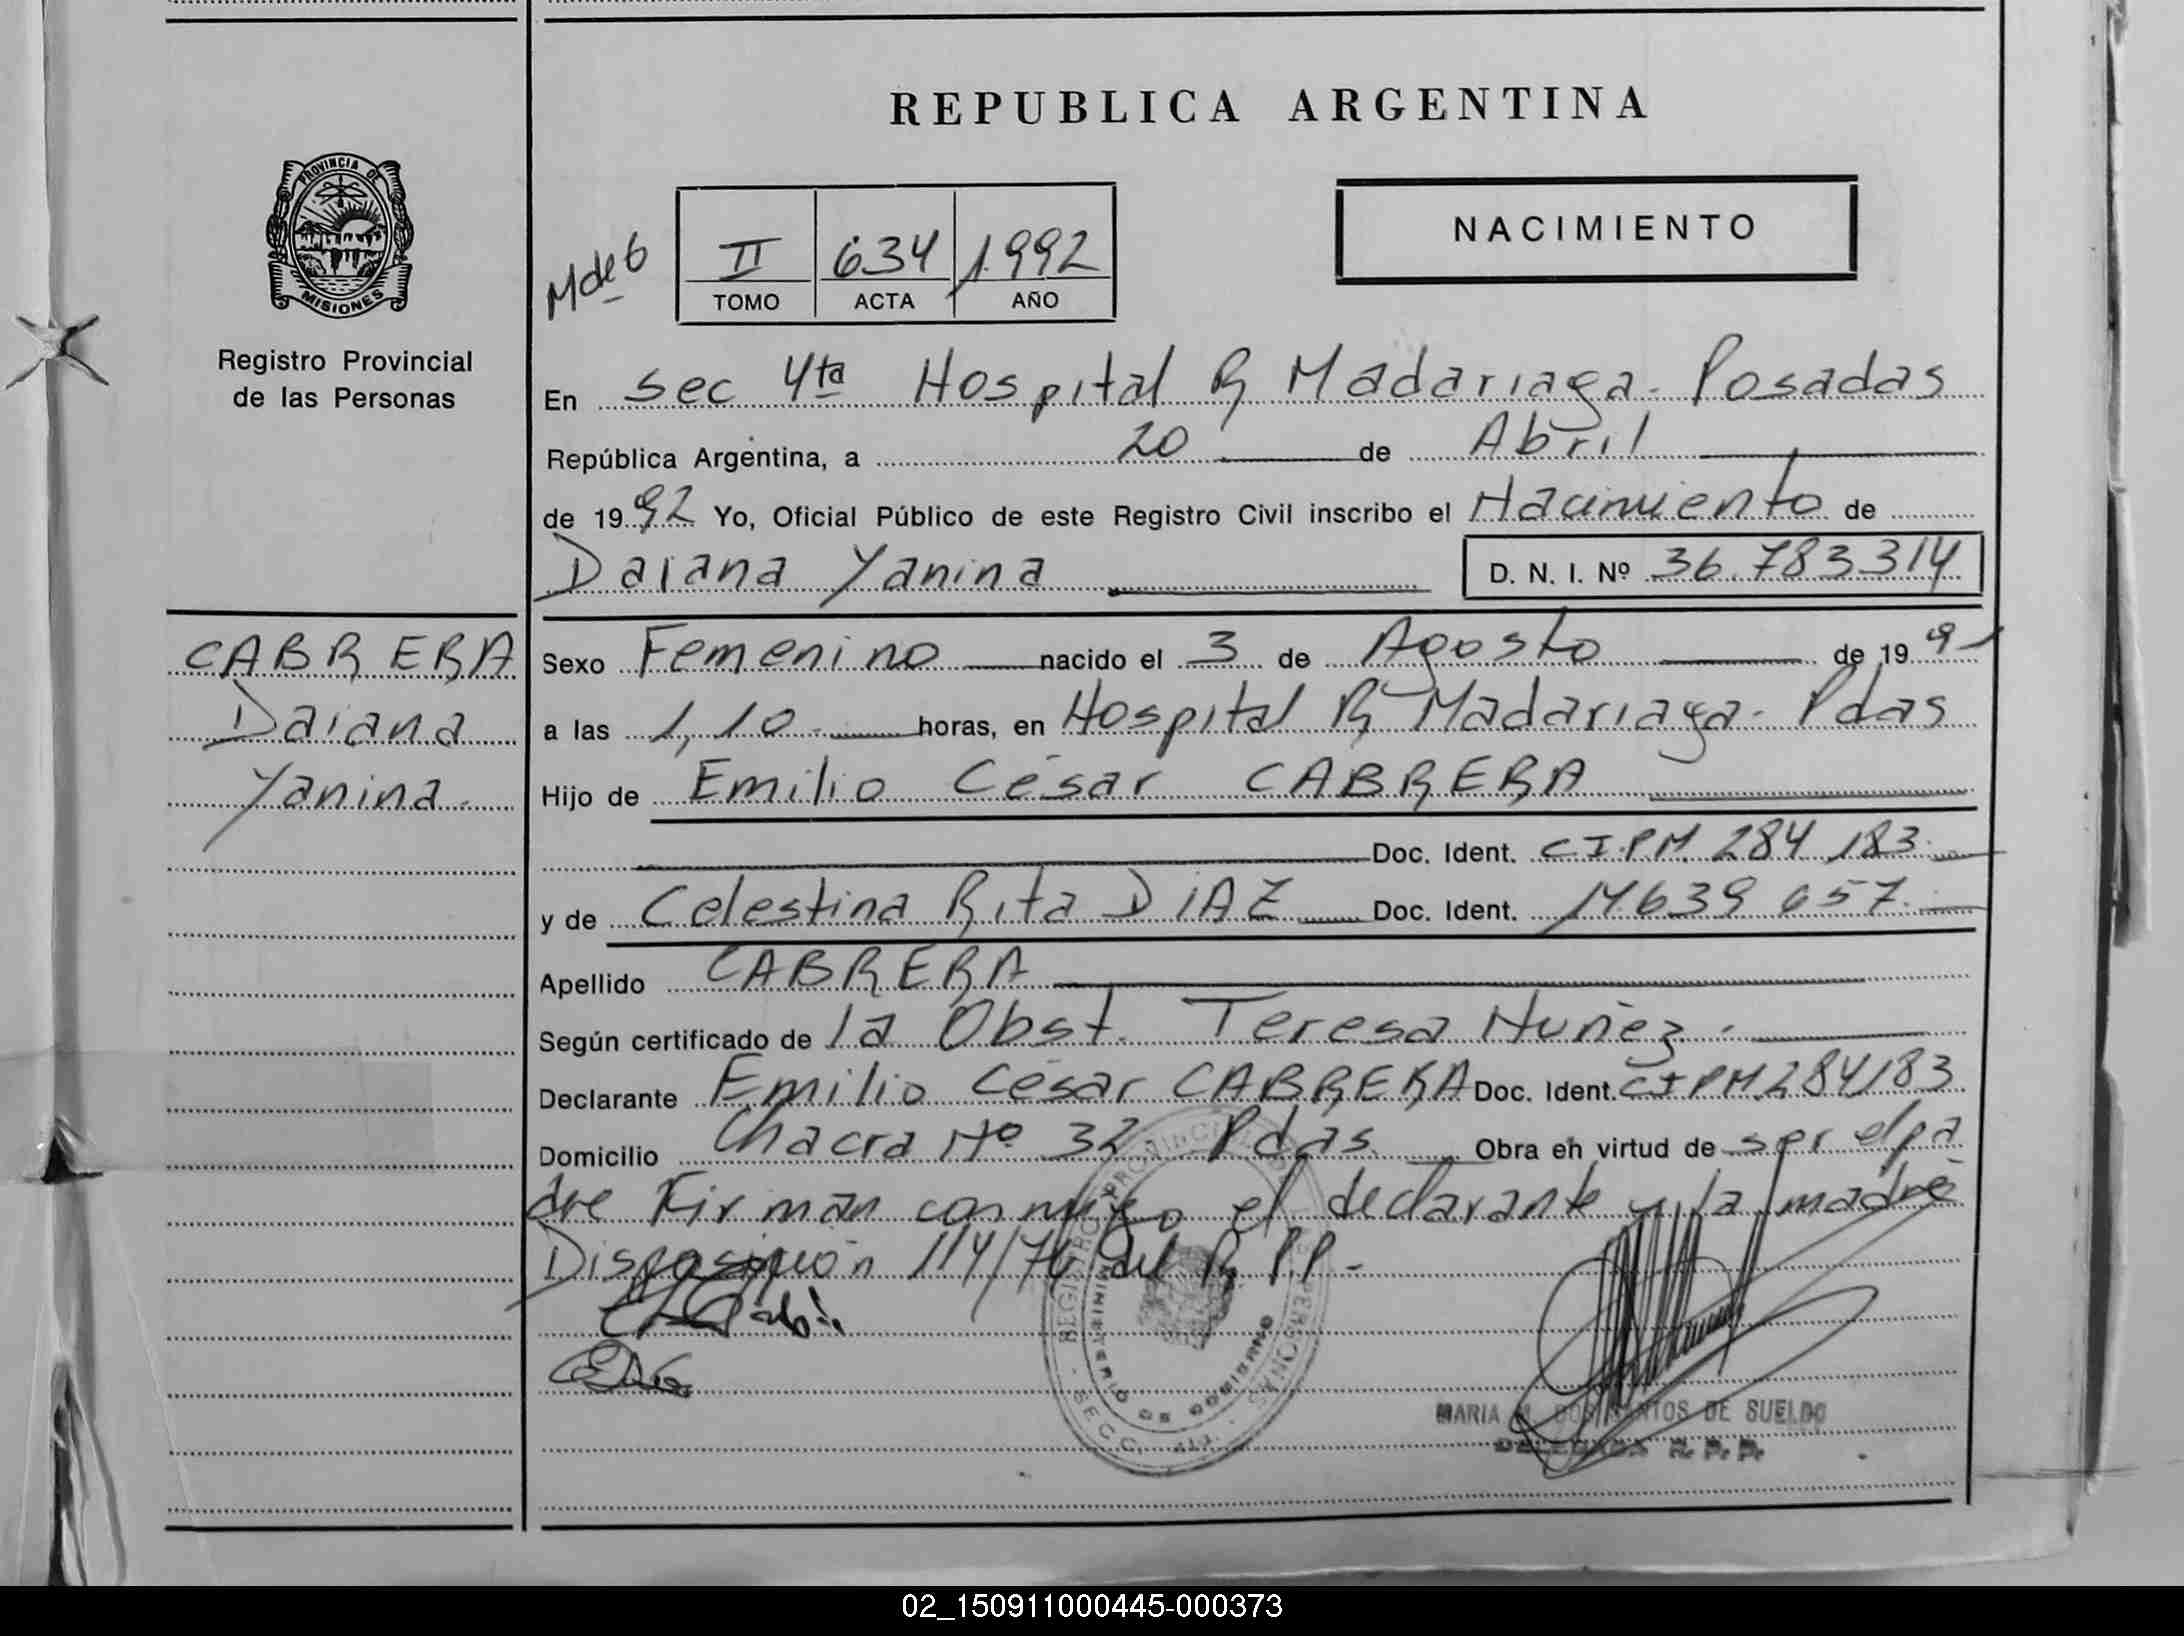 REPUBLICA ARGENTINA
PROVINCIA DE
MISIONES
Registro Provincial
de las Personas
NACIMIENTO
M de 6
II 634 1992
TOMO ACTA AÑO
En sec 4ta Hospital R Madariaga - Posadas
República Argentina, a 20 de Abril
de 1992 Yo, Oficial Público de este Registro Civil inscribo el Nacimiento de
Daiana Yanina D. N. I. Nº 36.783314
CABRERA
Daiana
Yanina.
Sexo Femenino nacido el 3 de Agosto de 1991
a las 1,10 horas, en Hospital R Madariaga - Pdas
Hijo de Emilio César CABRERA
Doc. Ident. C I.P.M. 284 183
y de Celestina Rita DIAZ Doc. Ident. 14639 657.
Apellido CABRERA
Según certificado de la Obst. Teresa Nuñez.
Declarante Emilio César CABRERA Doc. Ident. C I P M. 284183
Domicilio Chacra Nº 32 Pdas. Obra en virtud de ser el pa
dre Firman conmigo el declarante y la madre
Disposición 114/76 del R.P.P. -
REGISTRO PROVINCIAL DE LAS PERSONAS
MINISTERIO DE GOBIERNO
SECC. 4ta.
MARIA M. DOS SANTOS DE SUELDO
DELEGADA R. P. P.
02_150911000445-000373